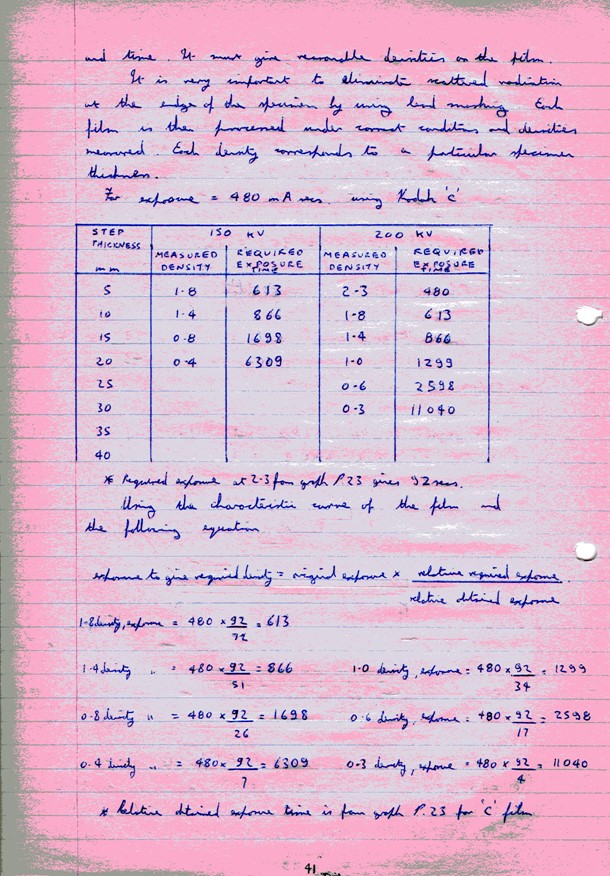 and time. It must give reasonable densities on the film.
It is very important to eliminate scattered radiation
at the edge of the specimen by using lead masking Each
film is then processed under correct conditions and densities
measured. Each density corresponds to a particular specimen
thickness.
For exposure = 480 mA secs. using Kodak 'C'
STEP THICKNESS mm 150 KV 200 KV
MEASURED DENSITY REQUIRED EXPOSURE TIME MEASURED DENSITY REQUIRED EXPOSURE TIME
5 1-8 613 2-3 480
10 1-4 866 1-8 613
15 0-8 1698 1-4 866
20 0-4 6309 1-0 1299
25 0-6 2598
30 0-3 11040
35
40
* Required exposure at 2-3 from graph P.23 gives 92 secs.
Using the characteristic curve of the film and
the following equation
exposure to give required density = original exposure × relative required exposure.
relative obtained exposure
1-8 density, exposure = 480 × 92/72 = 613
1-4 density " = 480 × 92/51 = 866 1-0 density, exposure = 480 × 92/34 = 1299
0-8 density " = 480 × 92/26 = 1698 0-6 density, exposure = 480 × 92/17 = 2598
0-4 density " = 480 × 92/7 = 6309 0-3 density, exposure = 480 × 92/4 = 11040
* Relative obtained exposure time is from graph P.23 for 'C' film
41